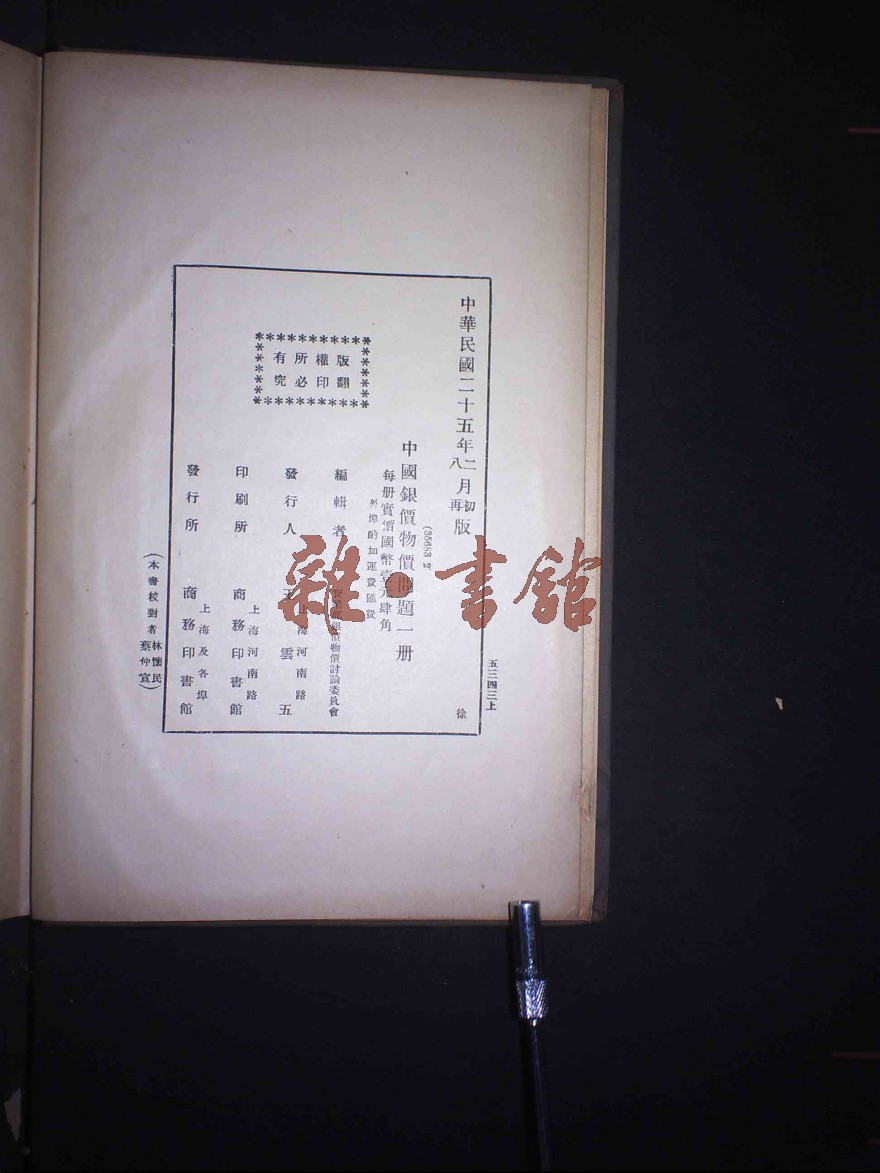 中華民國二十五年二月初版
八 再
五三四三上
徐
(35683
中國銀價物價問題一册
每册實價國幣壹元肆角
外埠酌加運費匯費
版權所有
翻印必究
編輯者
銀價物價討論委員會
發行人
王雲五
上海河南路
印刷所
商務印書館
上海河南路
發行所
商務印書館
上海及各埠
(本書校對者林懷民
蔡仲宣)
雜·書館